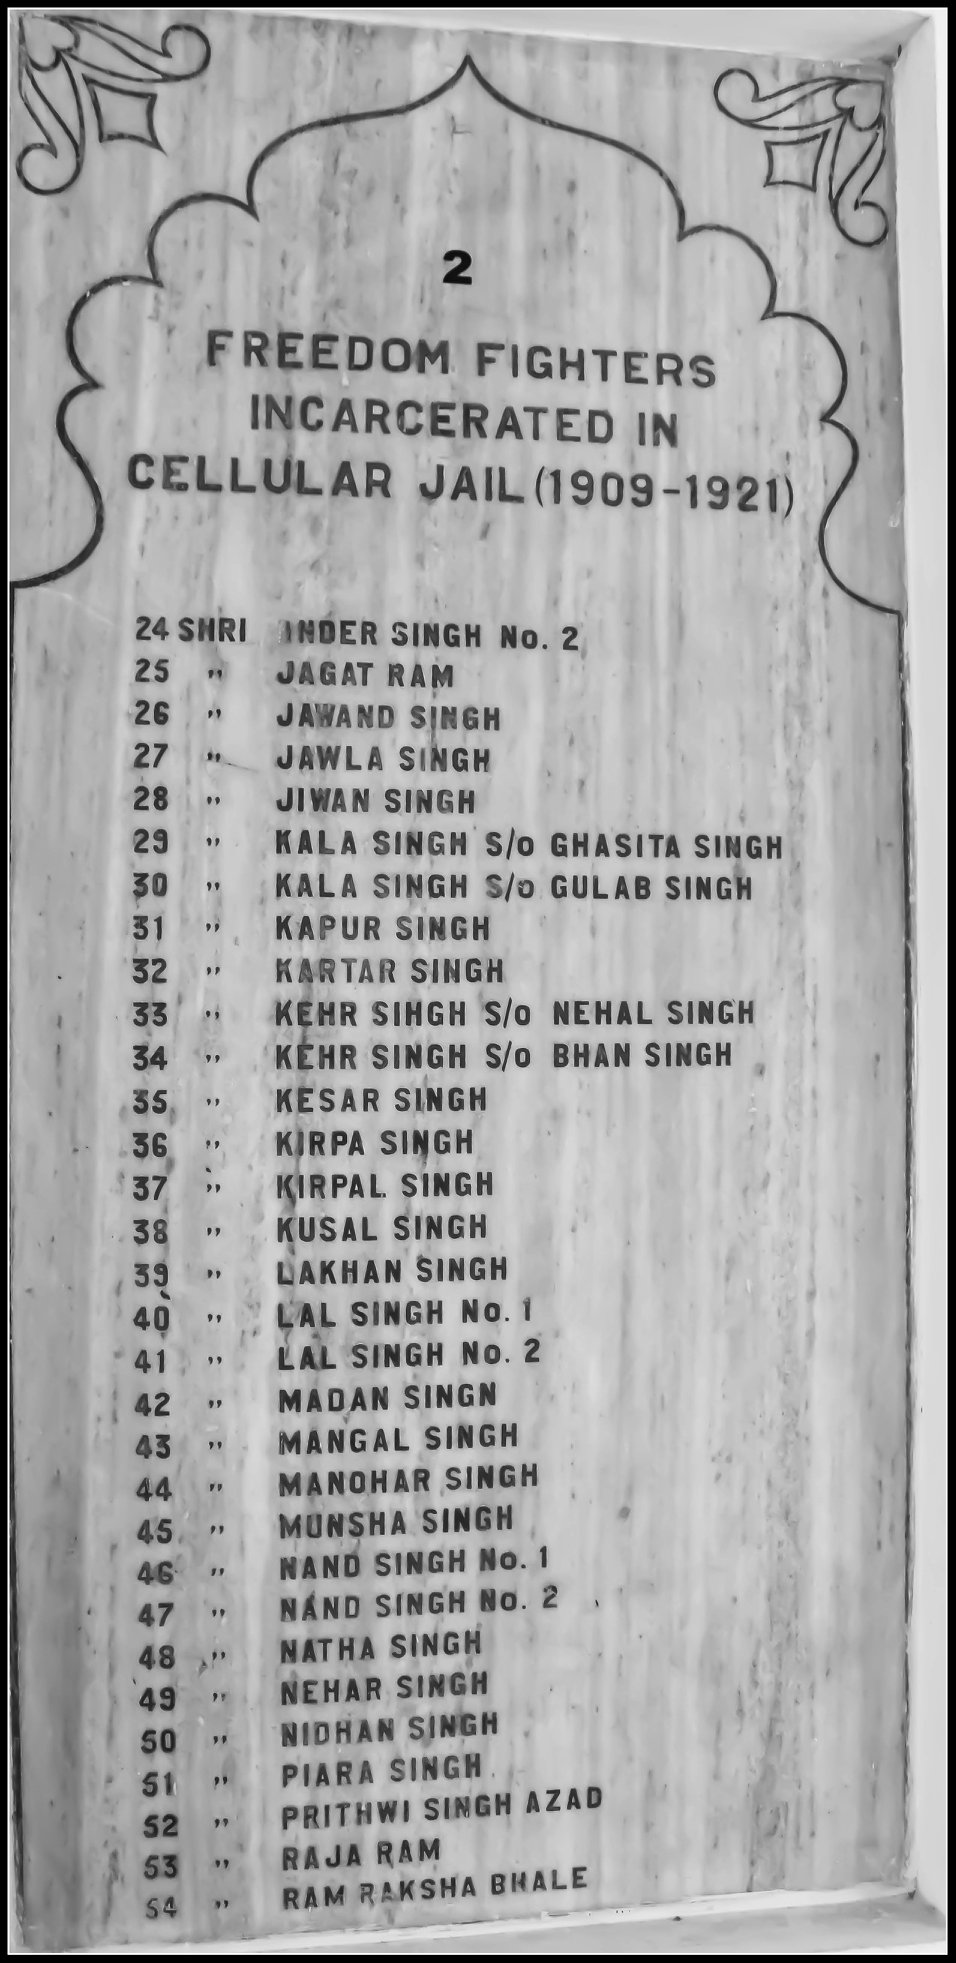 2
FREEDOM FIGHTERS
INCARCERATED IN
CELLULAR JAIL (1909-1921)
24 SHRI INDER SINGH No. 2
25 " JAGAT RAM
26 " JAWAND SINGH
27 " JAWLA SINGH
28 " JIWAN SINGH
29 " KALA SINGH S/O GHASITA SINGH
30 " KALA SINGH S/O GULAB SINGH
31 " KAPUR SINGH
32 " KARTAR SINGH
33 " KEHR SIHGH S/O NEHAL SINGH
34 " KEHR SINGH S/O BHAN SINGH
35 " KESAR SINGH
36 " KIRPA SINGH
37 " KIRPAL SINGH
38 " KUSAL SINGH
39 " LAKHAN SINGH
40 " LAL SINGH No. 1
41 " LAL SINGH No. 2
42 " MADAN SINGN
43 " MANGAL SINGH
44 " MANOHAR SINGH
45 " MUNSHA SINGH
46 " NAND SINGH No. 1
47 " NAND SINGH No. 2
48 " NATHA SINGH
49 " NEHAR SINGH
50 " NIDHAN SINGH
51 " PIARA SINGH
52 " PRITHWI SINGH AZAD
53 " RAJA RAM
54 " RAM RAKSHA BHALE